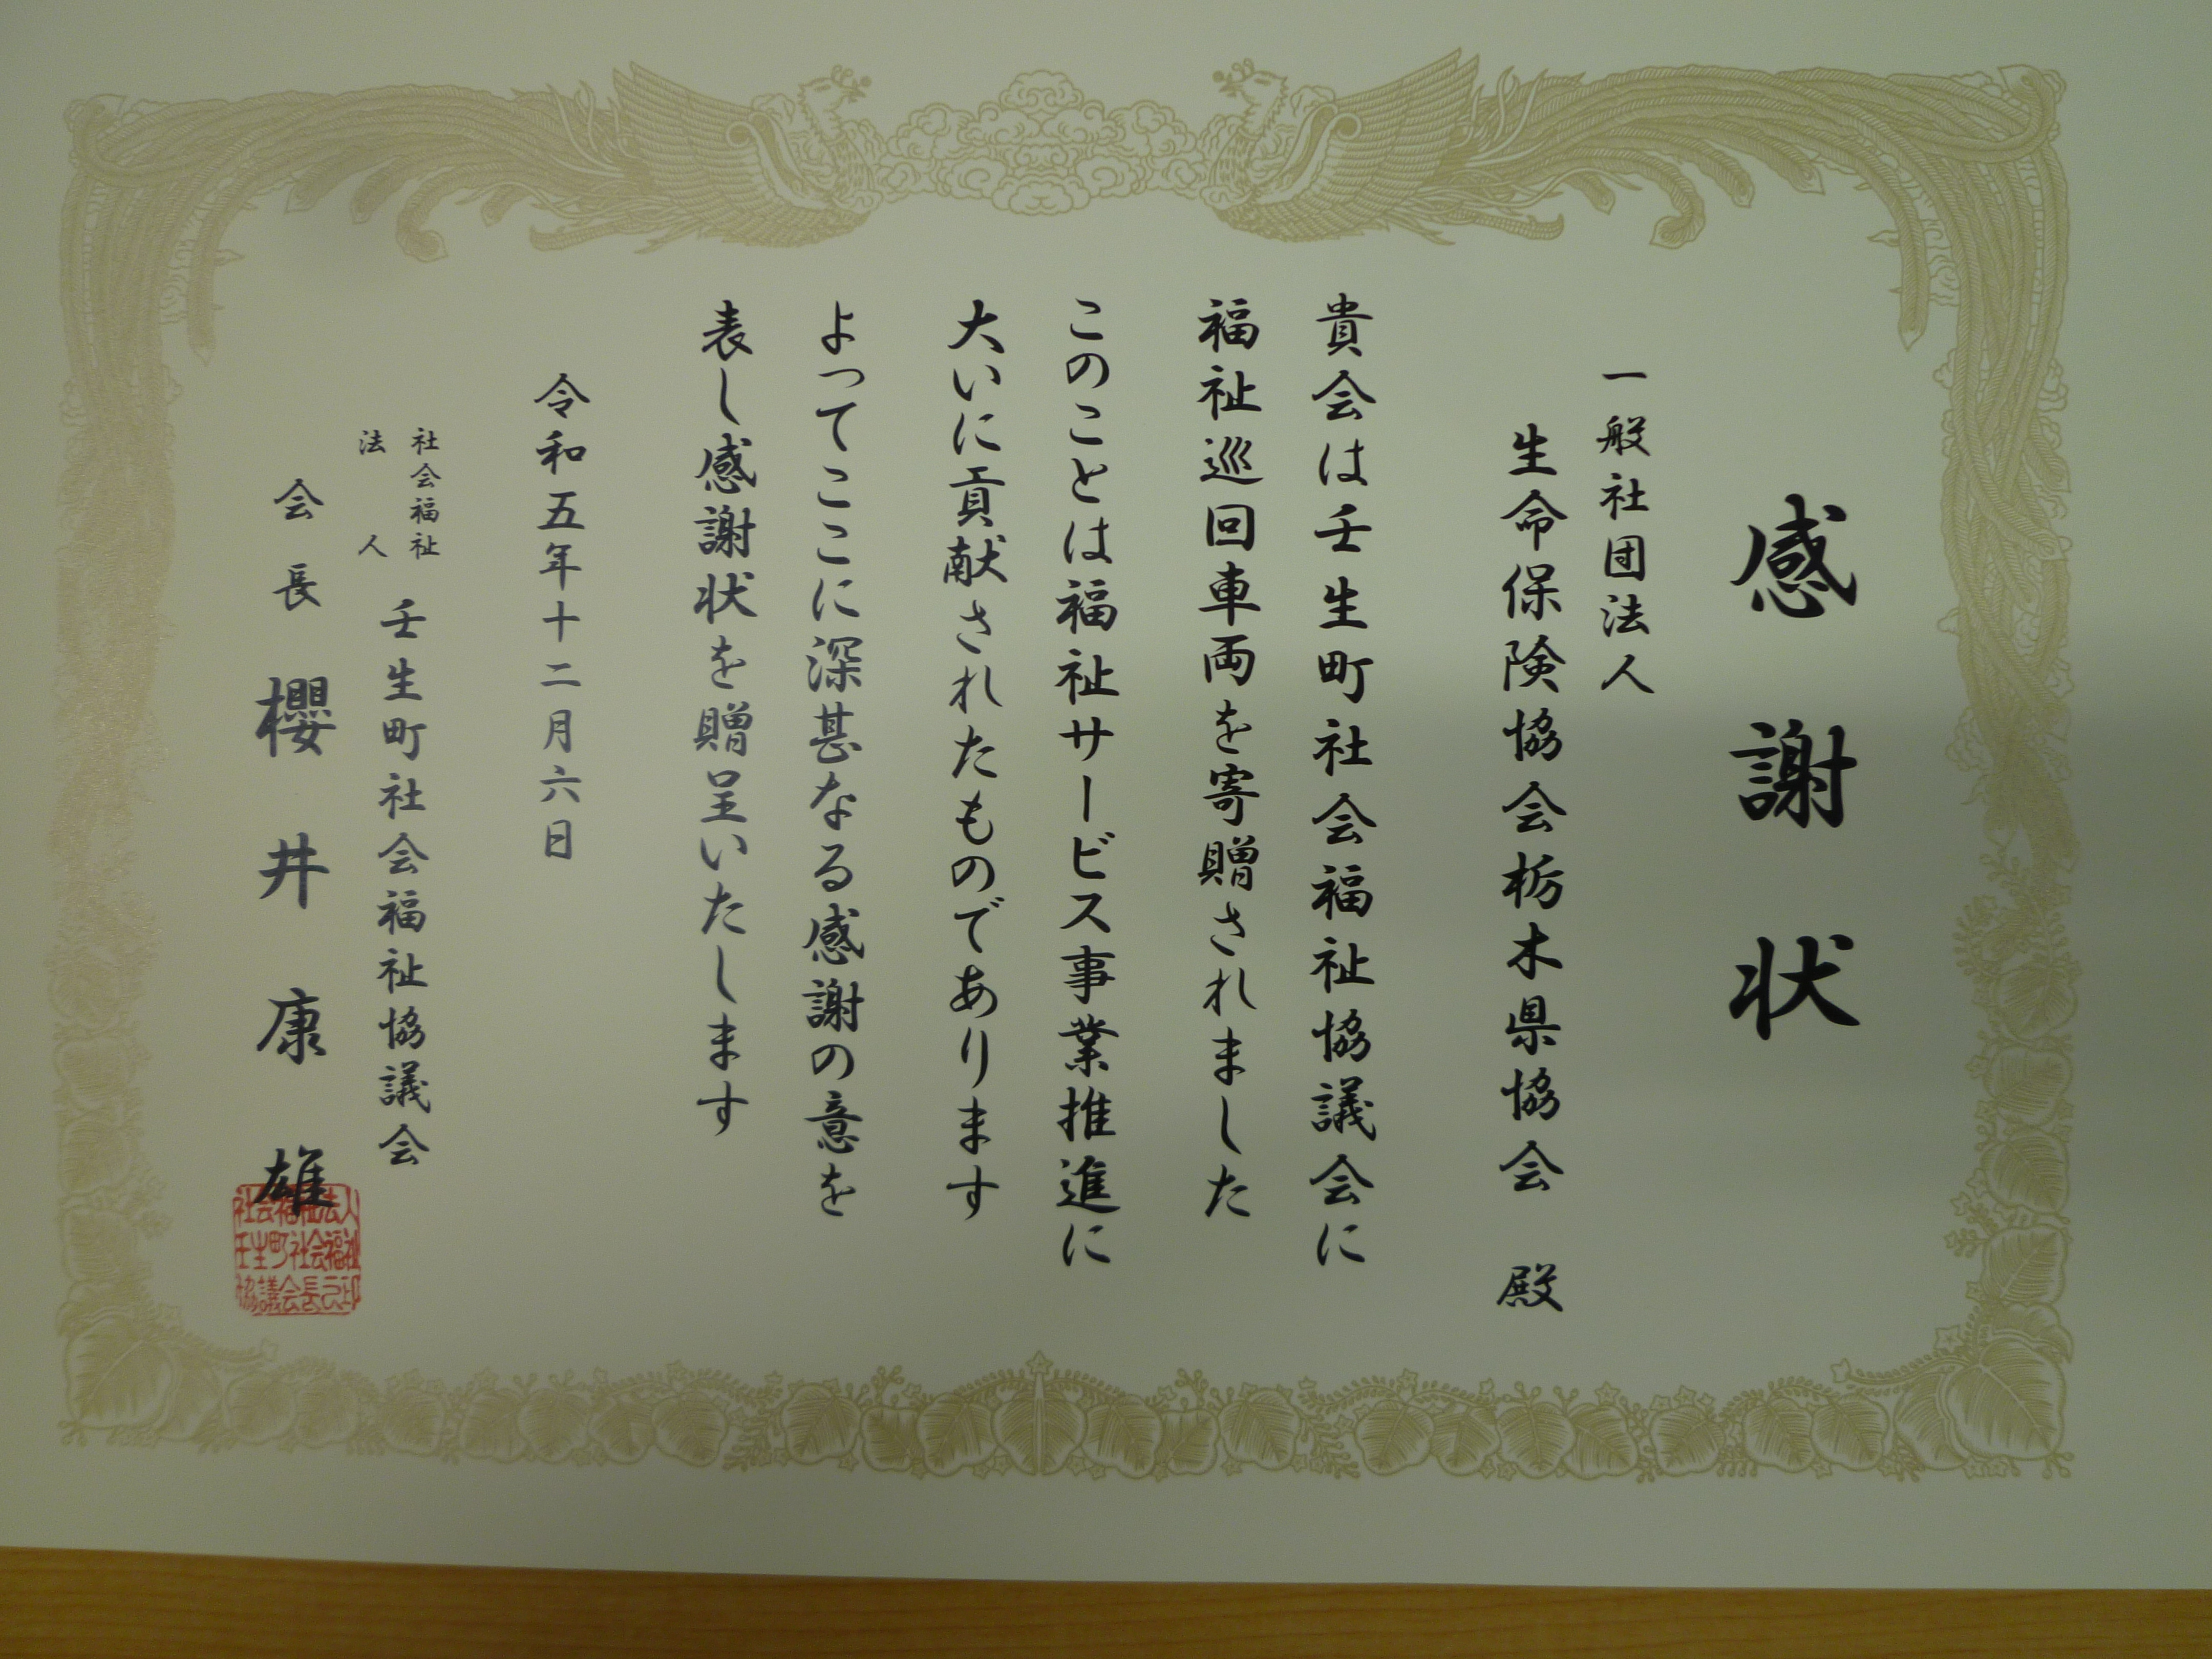 感謝状
一般社団法人
生命保険協会栃木県協会 殿
貴会は壬生町社会福祉協議会に
福祉巡回車両を寄贈されました
このことは福祉サービス事業推進に
大いに貢献されたものであります
よってここに深甚なる感謝の意を
表し感謝状を贈呈いたします
令和五年十二月六日
社会福祉
法人
壬生町社会福祉協議会
会長 櫻井康雄
社会福祉法人
壬生町社会福祉
協議会長之印